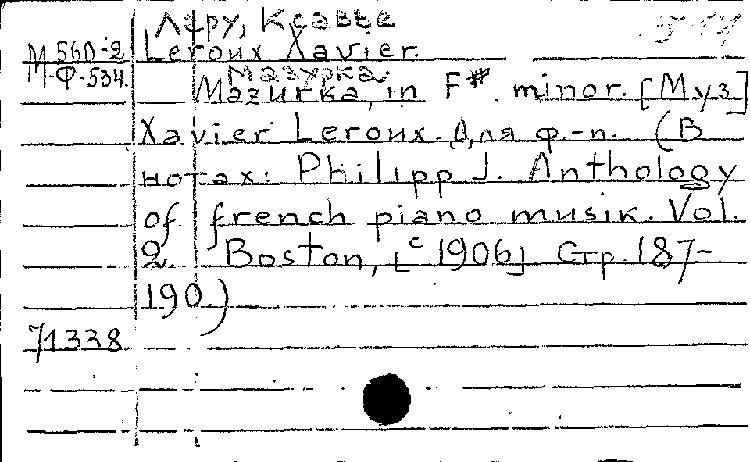 Леру, Ксавье
М 560-2 Leroux Xavier.
М-Ф-534. Мазурка
Mazurka, in F# minor. [Муз]
Xavier Leroux. Для ф.-п. (В
нотах: Philipp J. Anthology
of french piano musik. Vol.
2. Boston, [c 1906] Стр. 187-
190.)
71338